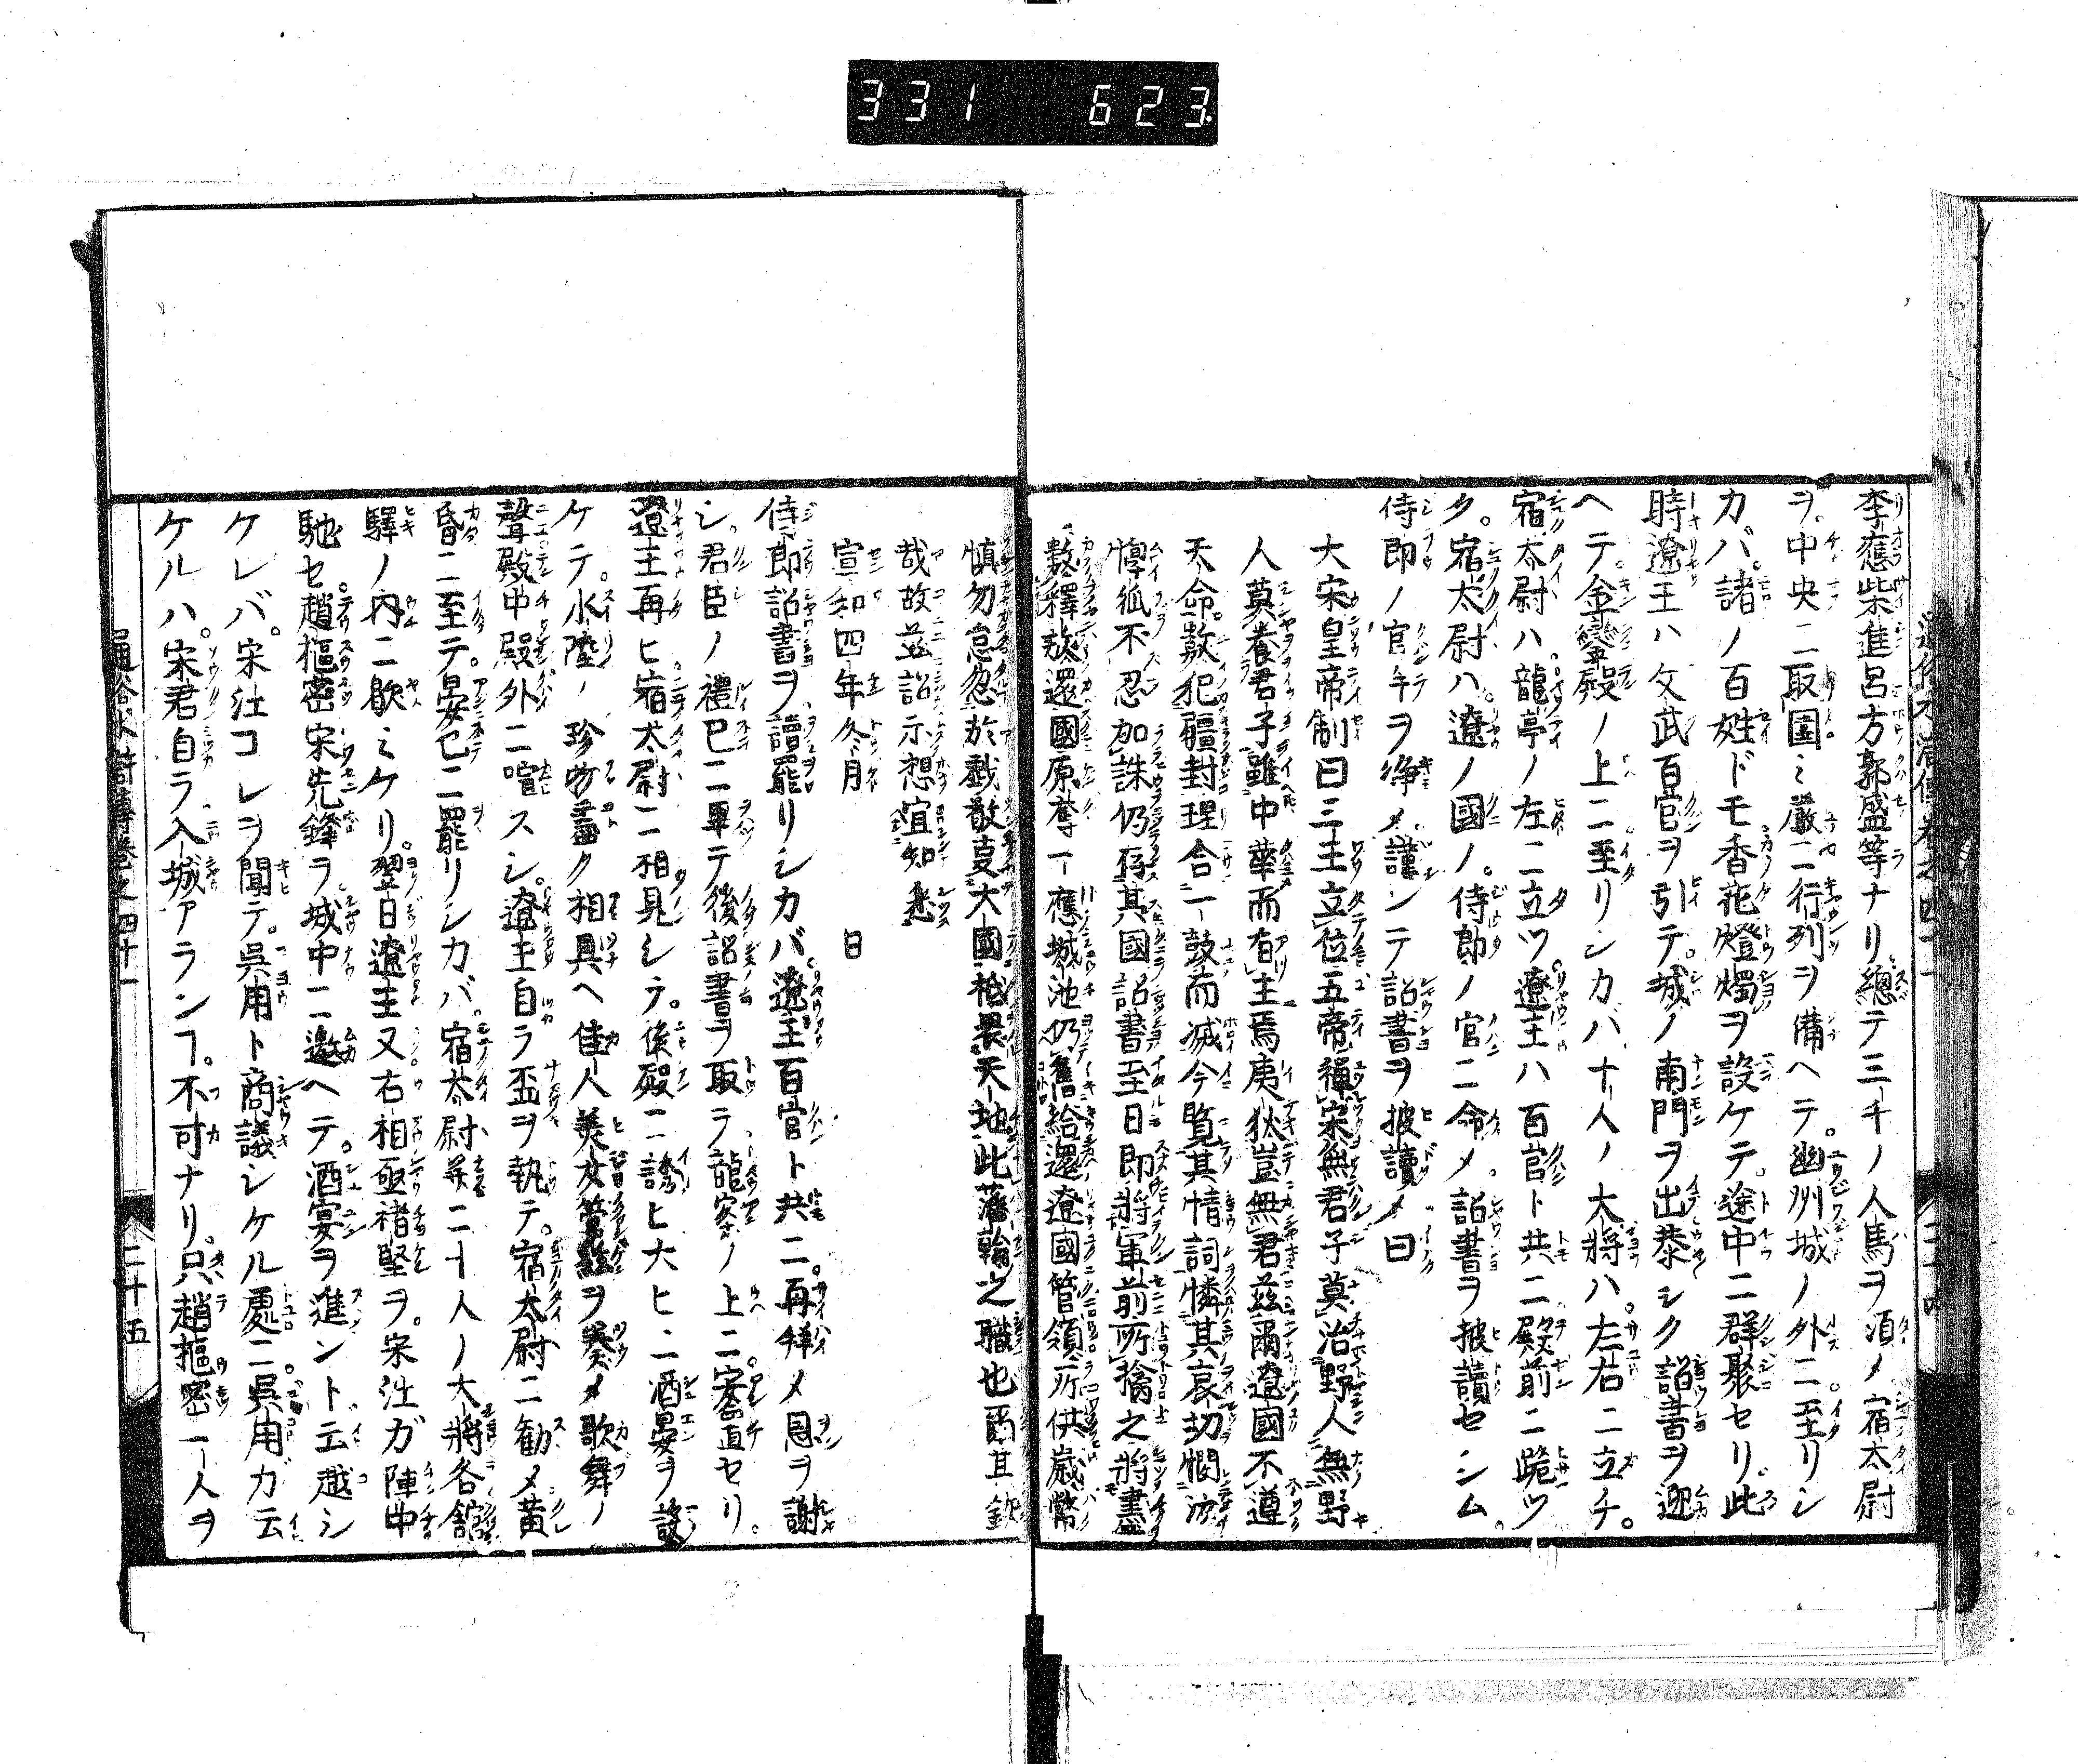 331 623
李應柴進呂方郭盛等ナリ總テ三千ノ人馬ヲ領メ宿太尉
ヲ。中央ニ取圍ミ厳ニ行列ヲ備ヘテ。幽州城ノ外ニ至リシ
カバ。諸ノ百姓ドモ香花燈燭ヲ設ケテ。途中ニ群聚セリ此
時遼王ハ文武百官ヲ引テ。城ノ南門ヲ出恭シク詔書ヲ迎
ヘテ。金鑾殿ノ上ニ至リシカバ十人ノ大將ハ。左右ニ立チ。
宿太尉ハ龍亭ノ左ニ立ツ。遼主ハ百官ト共ニ殿前ニ跪ツ
ク。宿太尉ハ。遼ノ國ノ。侍郎ノ官ニ命メ。詔書ヲ披讀セシム。
侍郎ノ官牛ヲ
大宋皇帝制曰三王立位五帝禪宋無君子莫治野人無野
人莫養君子雖中華而有主焉夷狄豈無君茲爾遼國不遵
天命數犯疆封理合一鼓而滅今覧其情詞憐其哀切憫汝
惸孤不忍加誅仍存其國詔書至日即將軍前所擒之將盡
數釋放還國原奪一應城池仍舊給還遼國管領所供歳幣
慎勿怠忽於戲敬事大國祗畏天地此藩翰之職也爾其欽
哉故茲詔示想宜知悉
宣和四年冬月　日
侍郎詔書ヲ讀罷リシカバ。遼主百官ト共ニ。再拜メ恩ヲ謝
シ。君臣ノ禮已ニ畢テ後詔書ヲ取テ龍案ノ上ニ。安置セリ。
遼主再ヒ宿太尉ニ相見シテ。後殿ニ誘ヒ大ヒニ酒宴ヲ設
ケテ。水陸ノ珍物盡ク相具ヘ佳人美女管絃ヲ奏メ歌舞ノ
聲殿中殿外ニ喧スシ。遼主自ラ盃ヲ執テ。宿太尉ニ勸メ黄
昏ニ至テ。晏已ニ罷リシカバ。宿太尉并ニ十人ノ大將各館
驛ノ内ニ歇ミケリ。翌日遼主又右相亟褚堅ヲ。宋江ガ陣中
馳セ。趙樞密宋先鋒ヲ城中ニ邀ヘテ。酒宴ヲ進ントニ云越シ
ケレバ。宋江コレヲ聞テ。呉用ト商議シケル處ニ。呉用ガ云
ケルハ。宋君自ラ入城アランヿ。不可ナリ。只趙樞密一人ヲ
通俗水滸傳巻之四十一　二十五